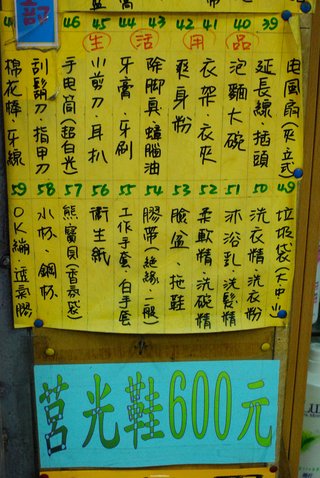 生活用品
39 電風扇(夾、立式)
40 延長線・插頭
41 泡麵大碗
42 衣架・衣夾
43 爽身粉
44 除腳臭・蟑腦油
45 牙膏・牙刷
46 小剪刀・耳扒
手電筒(超白光)
刮鬍刀・指甲刀
棉花棒・牙線
49 垃圾袋(大中小)
50 洗衣精・洗衣粉
51 沐浴乳・洗髮精
52 柔軟精・洗碗精
53 臉盆・拖鞋
54 膠帶(絕緣、一般)
55 工作手套・白手套
56 衛生紙
57 熊寶貝(香氛袋)
58 水杯・鋼杯
59 OK繃・透氣膠
莒光鞋600元